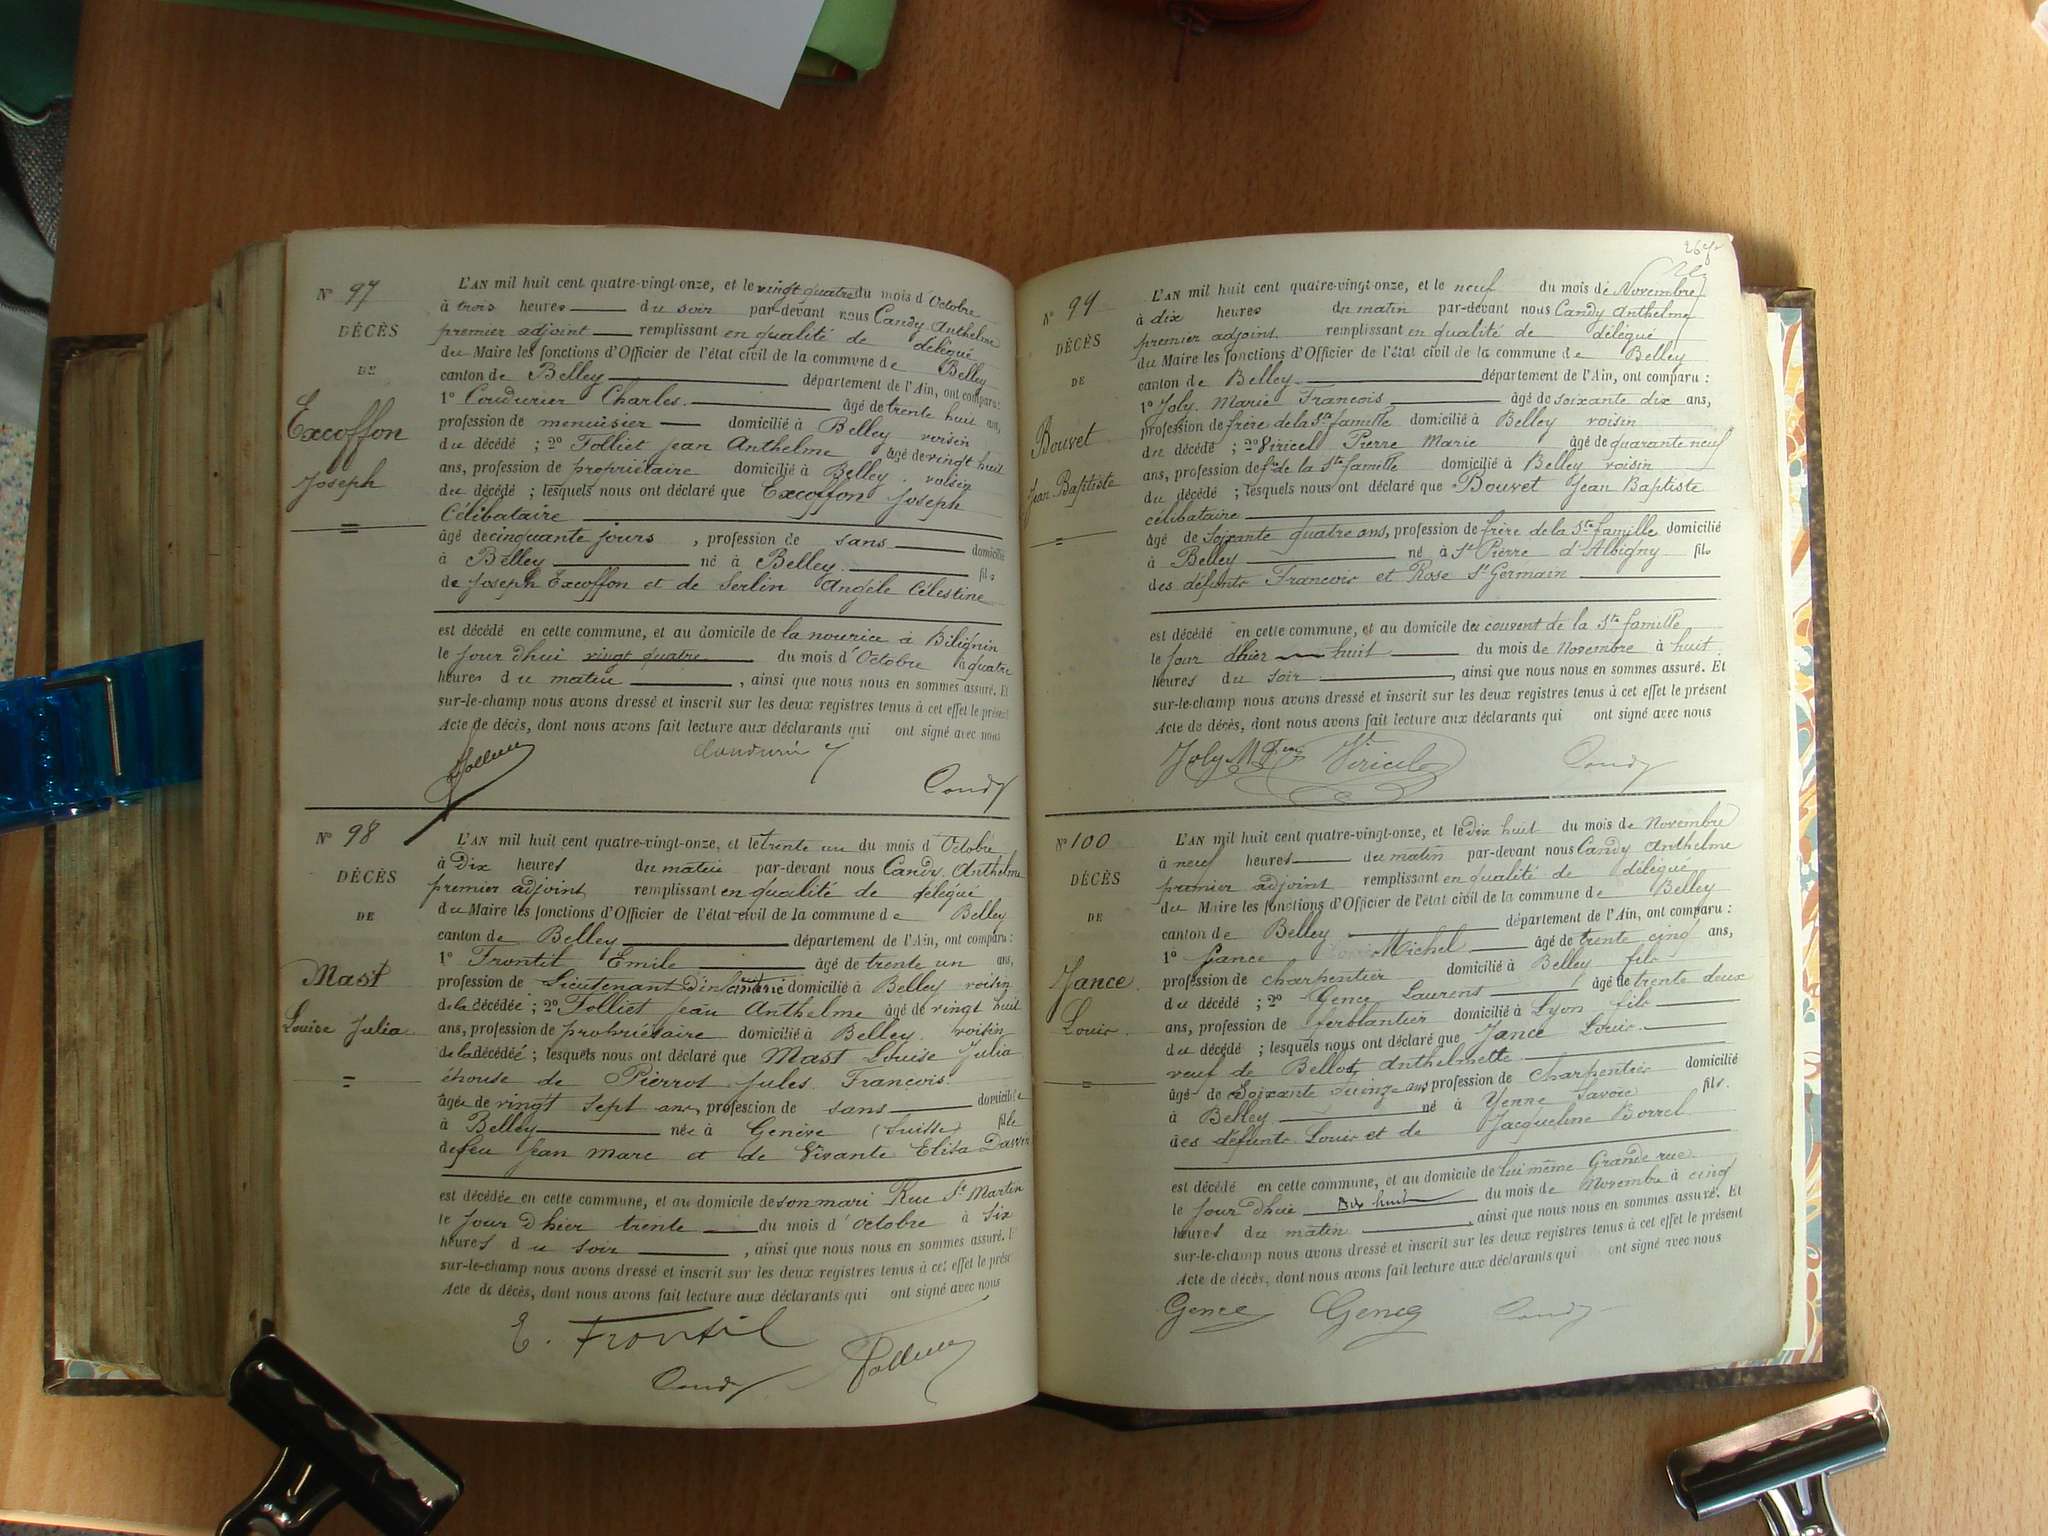 N° 97
DÉCÈS
DE
Excoffon
Joseph
L'AN mil huit cent quatre-vingt-onze, et le vingt quatre du mois d'Octobre
à trois heures du soir par-devant nous Candy Anthelme
premier adjoint remplissant en qualité de délégué
du Maire les fonctions d'Officier de l'état civil de la commune de Belley
canton de Belley département de l'Ain, ont comparu :
1° Coudurier Charles. âgé de trente huit ans,
profession de menuisier domicilié à Belley voisin
du décédé ; 2° Folliet Jean Anthelme âgé de vingt huit
ans, profession de propriétaire domicilié à Belley. voisin
du décédé ; lesquels nous ont déclaré que Excoffon Joseph
Célibataire
âgé de cinquante jours, profession de sans domicilié
à Belley né à Belley. fils
de Joseph Excoffon et de Serlin Angèle Célestine
est décédé en cette commune, et au domicile de la nourice à Bilignin
le jour d'hui vingt quatre du mois d'Octobre à quatre
heures du matin, ainsi que nous nous en sommes assuré. Et
sur-le-champ nous avons dressé et inscrit sur les deux registres tenus à cet effet le présent
Acte de décès, dont nous avons fait lecture aux déclarants qui ont signé avec nous
Folliet Coudurier
Candy
N° 98
DÉCÈS
DE
Mast
Louise Julia
L'AN mil huit cent quatre-vingt-onze, et le trente un du mois d'Octobre
à Dix heures du matin par-devant nous Candy Anthelme
premier adjoint remplissant en qualité de délégué
du Maire les fonctions d'Officier de l'état-civil de la commune de Belley
canton de Belley département de l'Ain, ont comparu :
1° Frontil Emile âgé de trente un ans,
profession de Lieutenant d'infanterie domicilié à Belley voisin
de la décédée ; 2° Folliet Jean Anthelme âgé de vingt huit
ans, profession de propriétaire domicilié à Belley. voisin
de la décédée ; lesquels nous ont déclaré que Mast Louise Julia
épouse de Pierrot Jules François.
âgée de vingt sept ans, profession de sans domiciliée
à Belley née à Genève (Suisse) fille
de feu Jean Marc et de Elisa
est décédée en cette commune, et au domicile de son mari Rue St Martin
le jour d'hier trente du mois d'Octobre à six
heures du soir, ainsi que nous nous en sommes assuré. Et
sur-le-champ nous avons dressé et inscrit sur les deux registres tenus à cet effet le présent
Acte de décès, dont nous avons fait lecture aux déclarants qui ont signé avec nous
E. Frontil
Candy Folliet
N° 99
DÉCÈS
DE
Bouvet
Jean Baptiste
L'AN mil huit cent quatre-vingt-onze, et le neuf du mois de Novembre
à dix heures du matin par-devant nous Candy Anthelme
premier adjoint remplissant en qualité de délégué
du Maire les fonctions d'Officier de l'état civil de la commune de Belley
canton de Belley. département de l'Ain, ont comparu :
1° Joly Marie François âgé de soixante dix ans,
profession de frère de la Ste famille domicilié à Belley voisin
du décédé ; 2° Viricel Pierre Marie âgé de quarante neuf
ans, profession de fre de la Ste famille domicilié à Belley voisin
du décédé ; lesquels nous ont déclaré que Bouvet Jean Baptiste
célibataire
âgé de soixante quatre ans, profession de frère de la Ste famille domicilié
à Belley né à St Pierre d'Albigny fils
des défunts François et Rose St Germain
est décédé en cette commune, et au domicile du couvent de la Ste famille
le jour d'hier huit du mois de Novembre à huit
heures du soir, ainsi que nous nous en sommes assuré. Et
sur-le-champ nous avons dressé et inscrit sur les deux registres tenus à cet effet le présent
Acte de décès, dont nous avons fait lecture aux déclarants qui ont signé avec nous
Joly Viricel Candy
N° 100
DÉCÈS
DE
Jance
Louis
L'AN mil huit cent quatre-vingt-onze, et le Dix huit du mois de Novembre
à neuf heures du matin par-devant nous Candy Anthelme
premier adjoint remplissant en qualité de délégué
du Maire les fonctions d'Officier de l'état civil de la commune de Belley
canton de Belley département de l'Ain, ont comparu :
1° Jance Michel âgé de trente cinq ans,
profession de charpentier domicilié à Belley fils
du décédé ; 2° Gence Laurens âgé de trente deux
ans, profession de ferblantier domicilié à Lyon fils
du décédé ; lesquels nous ont déclaré que Jance Louis
veuf de Bellot Anthelmette
âgé de Soixante quinze ans profession de charpentier domicilié
à Belley né à Yenne Savoie fils
des défunts Louis et de Jacqueline Borrel
est décédé en cette commune, et au domicile de lui même Grande rue
le jour d'hui Dix huit du mois de Novembre à cinq
heures du matin, ainsi que nous nous en sommes assuré. Et
sur-le-champ nous avons dressé et inscrit sur les deux registres tenus à cet effet le présent
Acte de décès, dont nous avons fait lecture aux déclarants qui ont signé avec nous
Gence Gence Candy